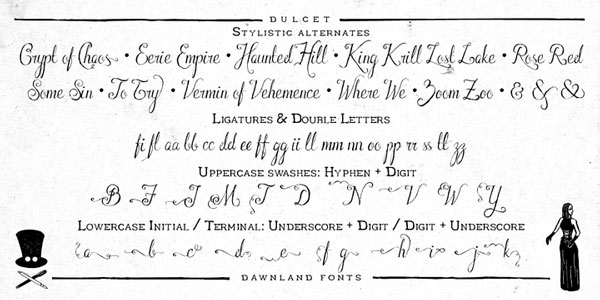 DULCET
STYLISTIC ALTERNATES
Crypt of Chaos • Eerie Empire • Haunted Hill • King Krill Lost Lake • Rose Red
Some Sin • To Try • Vermin of Vehemence • Where We • Zoom Zoo • & & &
LIGATURES & DOUBLE LETTERS
fi fl aa bb cc dd ee ff gg ii ll mm nn oo pp rr ss ll zz
UPPERCASE SWASHES: HYPHEN + DIGIT
B F I M T D N V W Y
LOWERCASE INITIAL / TERMINAL: UNDERSCORE + DIGIT / DIGIT + UNDERSCORE
a b c d e f g h i x j k
DAWNLAND FONTS